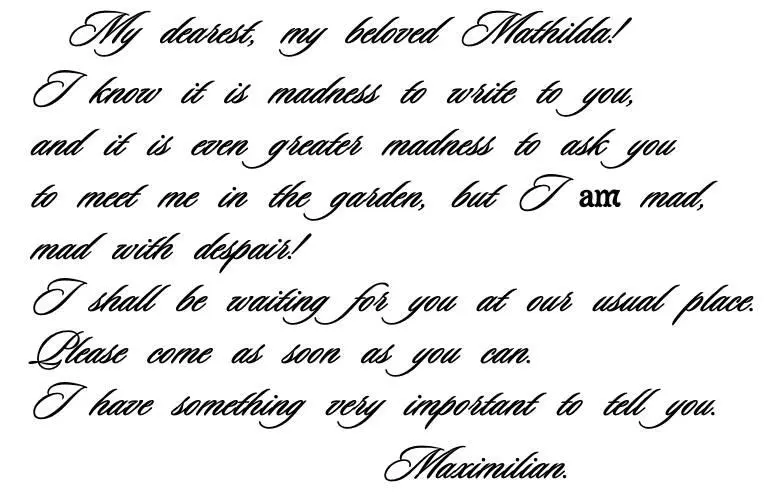 My dearest, my beloved Mathilda!
I know it is madness to write to you,
and it is even greater madness to ask you
to meet me in the garden, but I am mad,
mad with despair!
I shall be waiting for you at our usual place.
Please come as soon as you can.
I have something very important to tell you.
Maximilian.